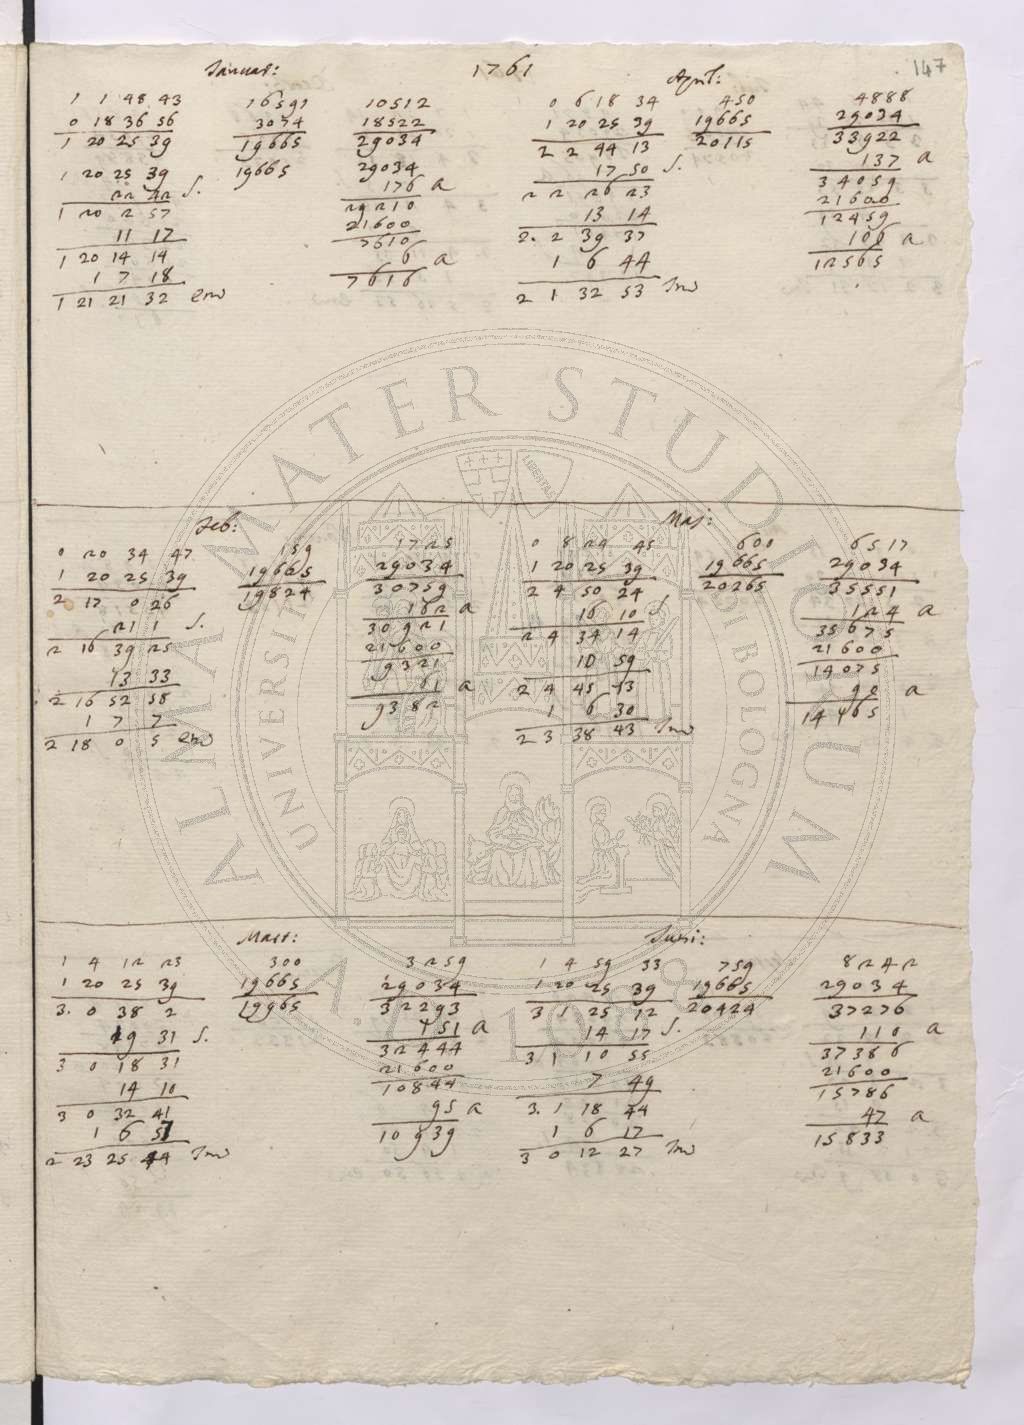 1761
147
Januar:
1 1 48 43 16591 10512
0 18 36 56 3074 18522
1 20 25 39 19665 29034
1 20 25 39 19665 29034
22 22 S. 176 a
1 20 2 57 29210
11 17 21600
1 20 14 14 7610
1 7 18 6 a
1 21 21 32 7616
April:
0 6 18 34 450 4888
1 20 25 39 19665 29034
2 2 44 13 20115 33922
17 50 S. 137 a
2 2 26 23 34059
13 14 21600
2. 2 39 37 12459
1 6 44 106 a
2 1 32 53 12565
Feb:
0 20 34 47 159 1725
1 20 25 39 19665 29034
2 17 0 26 19824 30759
21 1 S. 162 a
2 16 39 25 30921
13 33 21600
2 16 52 58 9321
1 7 7 61 a
2 18 0 5 9382
Maj:
0 8 24 45 600 6517
1 20 25 39 19665 29034
2 4 50 24 20265 35551
16 10 S. 124 a
2 4 34 14 35675
10 59 21600
2 4 45 13 14075
1 6 30 90 a
2 3 38 43 14165
Mart:
1 4 12 23 300 3259
1 20 25 39 19665 29034
3. 0 38 2 19965 32293
19 31 S. 151 a
3 0 18 31 32444
14 10 21600
3 0 32 41 10844
1 6 57 95 a
2 23 25 44 10939
Juni:
1 4 59 33 759 8242
1 20 25 39 19665 29034
3 1 25 12 20424 37276
14 17 S. 110 a
3 1 10 55 37386
7 49 21600
3. 1 18 44 15786
1 6 17 47 a
3 0 12 27 15833
ALMA MATER STUDIORUM
UNIVERSITÀ DI BOLOGNA
LIBERTAS
A.D. 1088